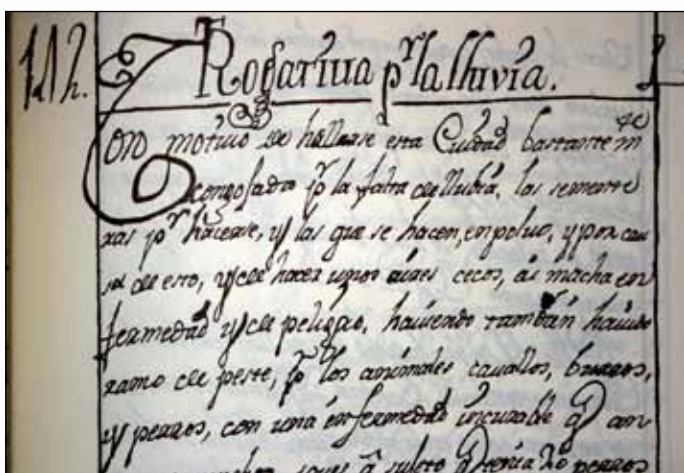 142.
Rogativa pr la lluvia.
Con motivo de hallarse esta Ciudad bastantemte
congojada pr la falta de llubia, las semente
ras pr hacerse, y las que se hacen, en polvo, y por cau
sa de esto, y de hacer unos aires cecos, ai mucha en
fermedad y de peligro, haviendo tambien havido
ramo de peste, pr los animales cavallos, burros,
y perros, con una enfermedad incurable q an
perros